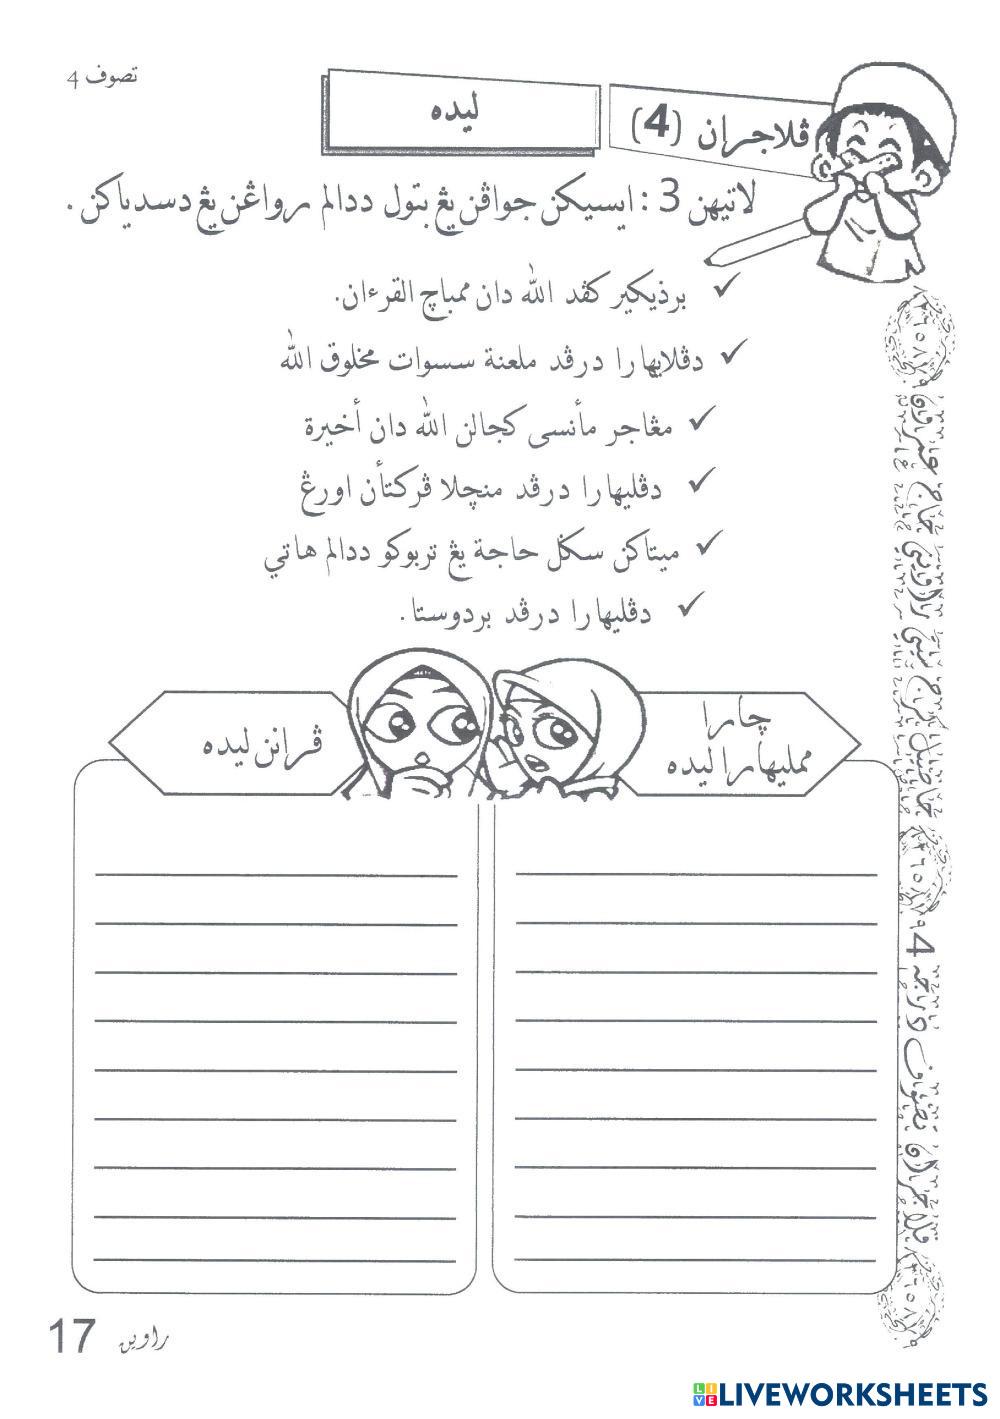 تصوف 4
ڤلاجران (4)
ليده
لاتيهن 3 : ايسيكن جواڤن يڠ بتول ددالم رواڠن يڠ دسدياكن .
✓ برذيكير كڤد الله دان ممباچ القرءان.
✓ دڤلايهارا درڤد ملعنة سسوات مخلوق الله
✓ مڠاجر مأنسى كجالن الله دان أخيرة
✓ دڤليهارا درڤد منچلا ڤركتأن اورڠ
✓ ميتاكن سكل حاجة يڠ تربوكو ددالم هاتي
✓ دڤليهارا درڤد بردوستا.
چارا
ممليهارا ليده
ڤرانن ليده
راوين 17
LIVEWORKSHEETS